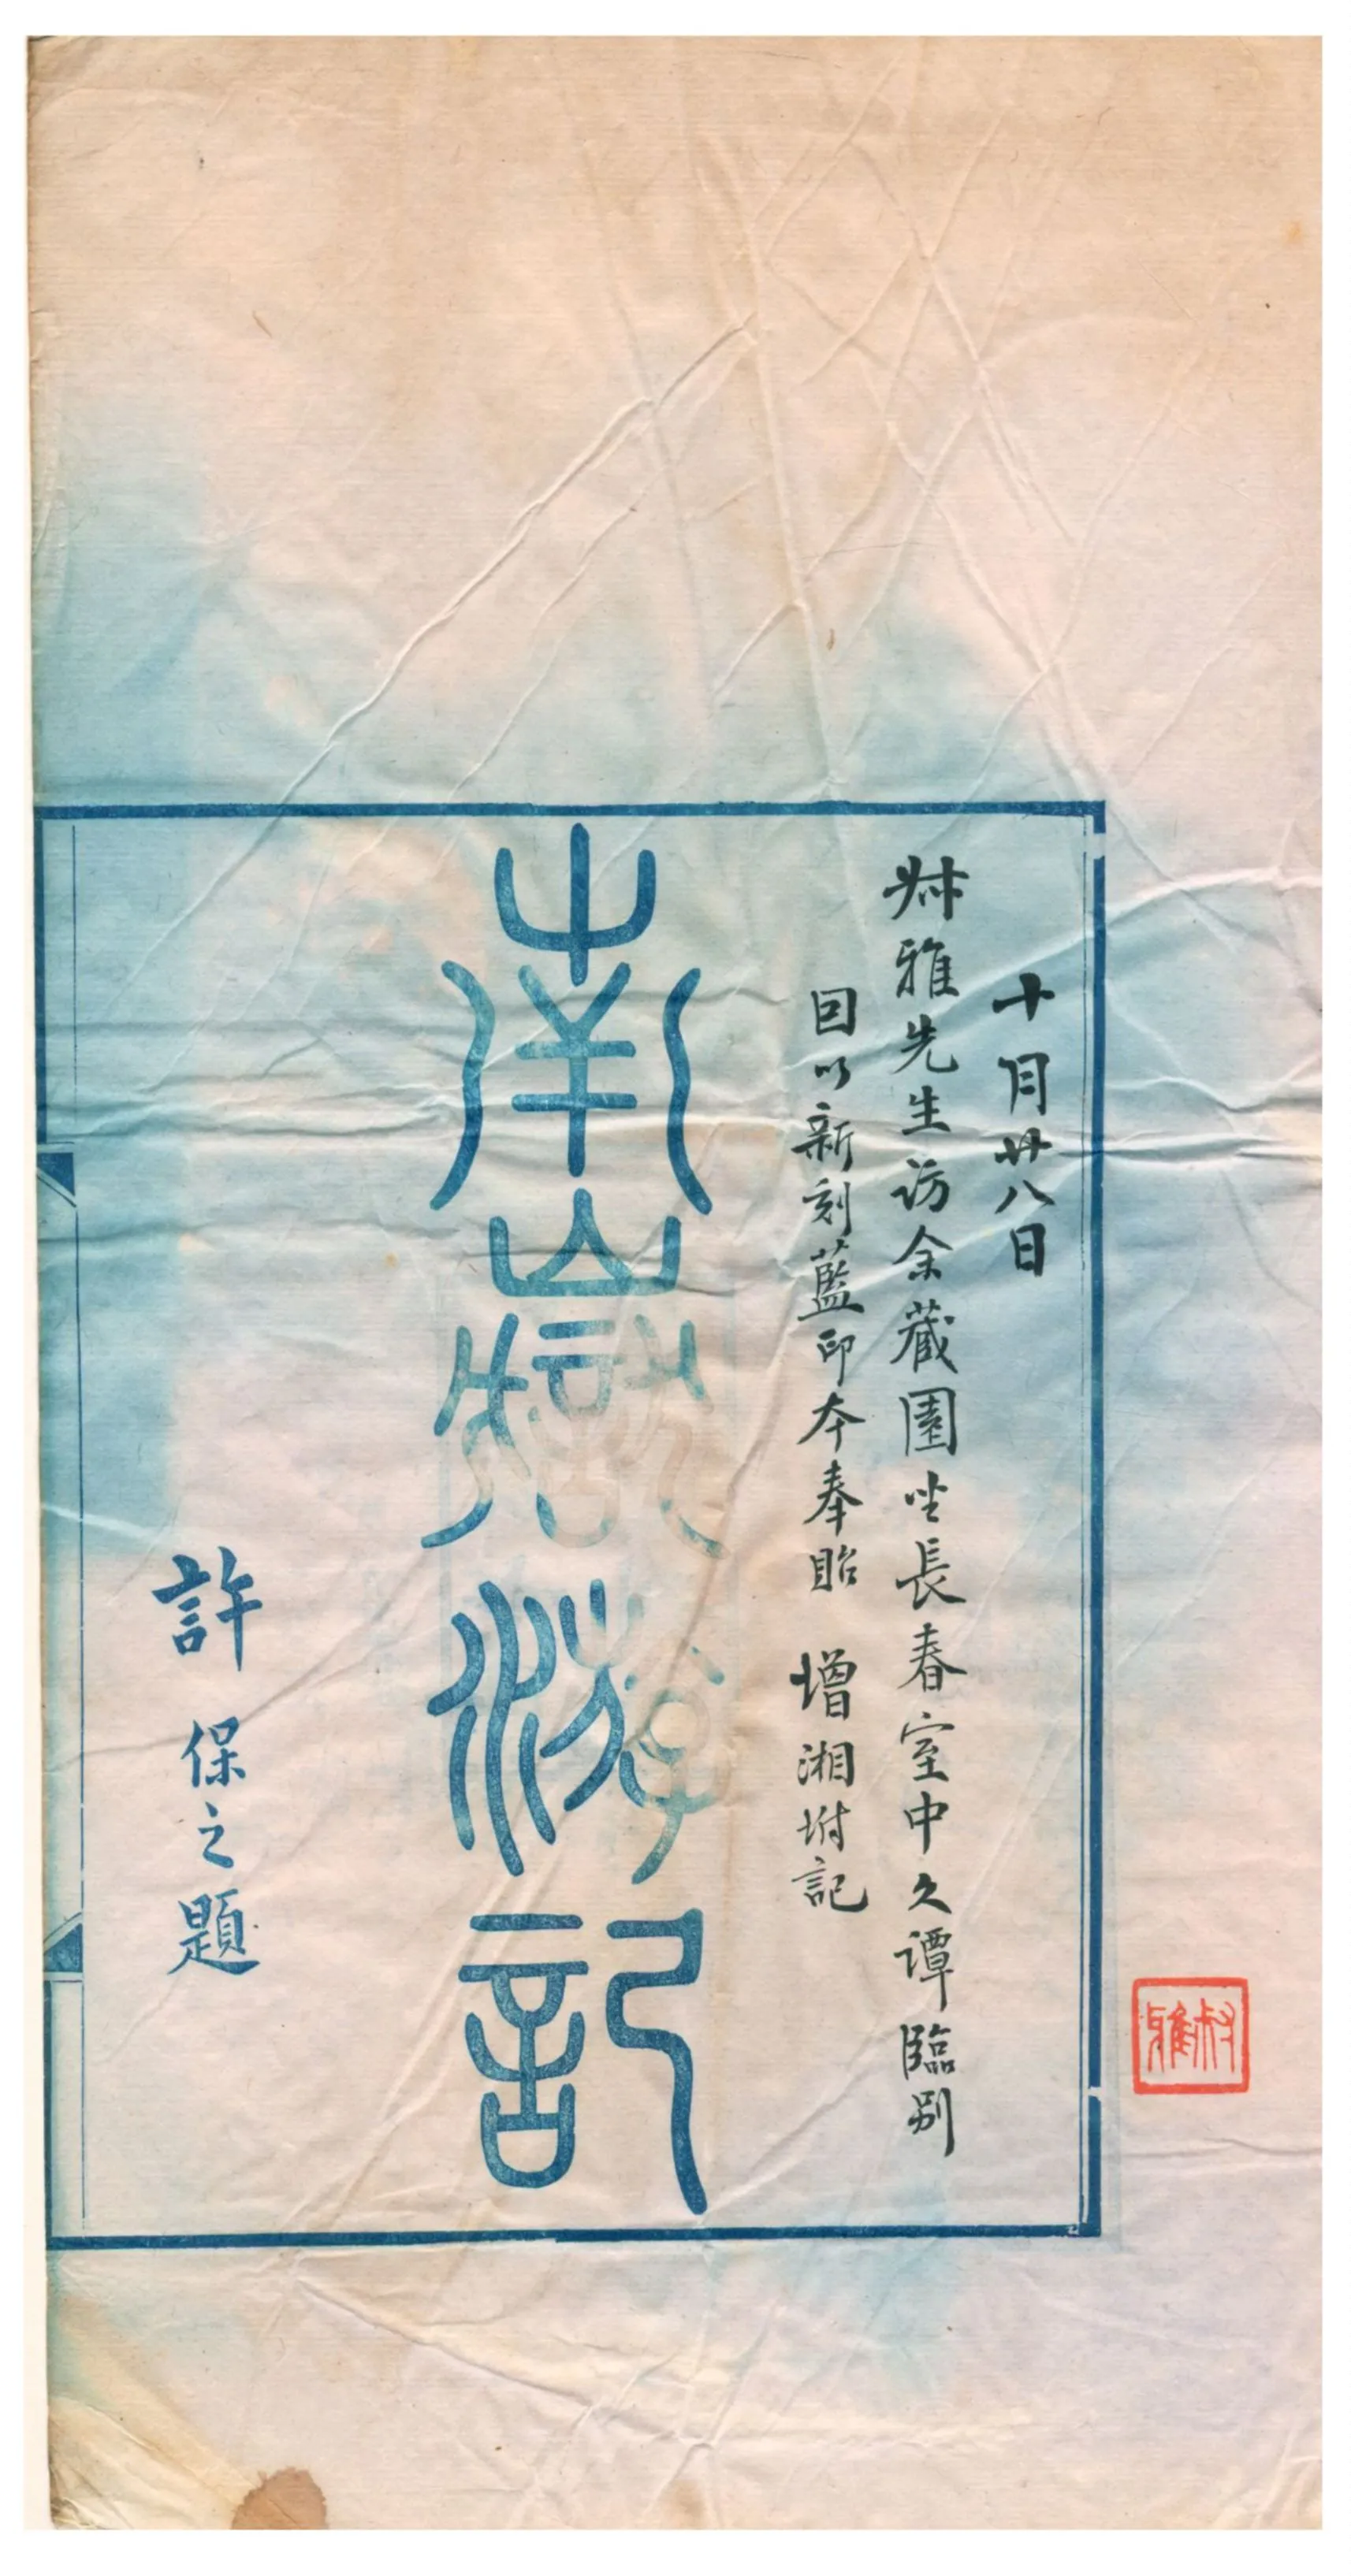 十月廿八日
尗雅先生訪余藏園坐長春室中久譚臨別
回以新刻藍印本奉貽　增湘坿記
南嶽游記
許保之題
叔雅